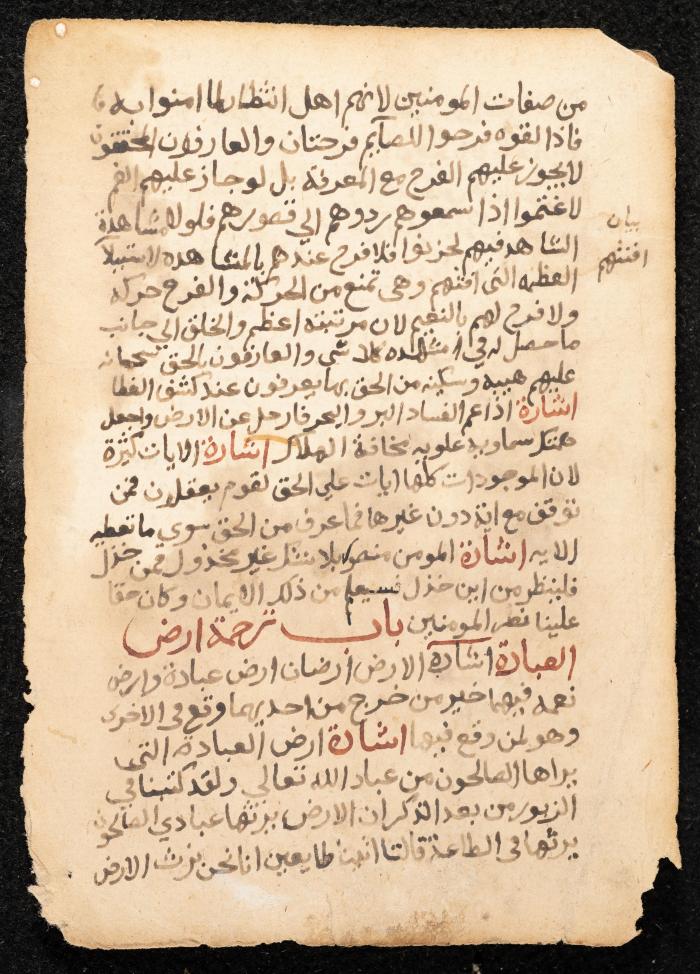 من صفات المومنين لانهم اهل انتظار لما امنوا به
فاذا لقوه فرحوا للصآيم فرحتان والعارفون المحققون
لا يجوز عليهم الفرح مع المعرفة بل لو جاز عليهم الغم
لاغتموا اذا سمعوهم ردوهم الي قصورهم فلولا مشاهدة
الشاهد فيهم لحزنوا فلا فرح عندهم بالمشاهده لاستيلا
بيان
افنتهم
العظمه التى افنتهم وهى تمنع من الحركة والفرح حركه
ولا فرح لهم بالنعيم لان مرتبته اعظم والخلق الي جانب
ما حصل له في مشاهده كلا شى والعارفون بالحق سبحانه
عليهم هيبه وسكينه من الحق بها يعرفون عند كشف الغطا
اشارة اذا عم الفساد البر والبحر فارحل عن الارض واجعل
همتك سماويه علويه مخافة الهلاك اشارة الايات كثيرة
لان الموجودات كلها ايات على الحق لقوم يعقلون فمن
توقف مع اية دون غيرها فما عرف من الحق سوي ما تعطيه
الايه اشارة المومن منصور بلا شك غير مخذول فمن خذل
فلينظر من اين خذل فسيعلم من ذلك الايمان وكان حقا
علينا نصر المومنين باب ترجمة ارض
العبادة اشارة الارض ارضان ارض عبادة وارض
نعمه فيهما خير من خرج من احديهما وقع في الاخرى
وهو لمن وقع فيها اشارة ارض العبادة التى
يراها الصالحون من عباد الله تعالي ولقد كتبنا في
الزبور من بعد الذكر ان الارض يرثها عبادي الصالحون
يرثها في الطاعة قالتا اتينا طايعين انا نحن نرث الارض